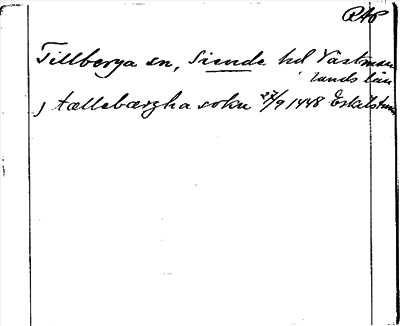 RAP
Tillberga sn, Siende hd Västman
lands län
j tællebærgha sokn 27/9 1448 Eskilstuna